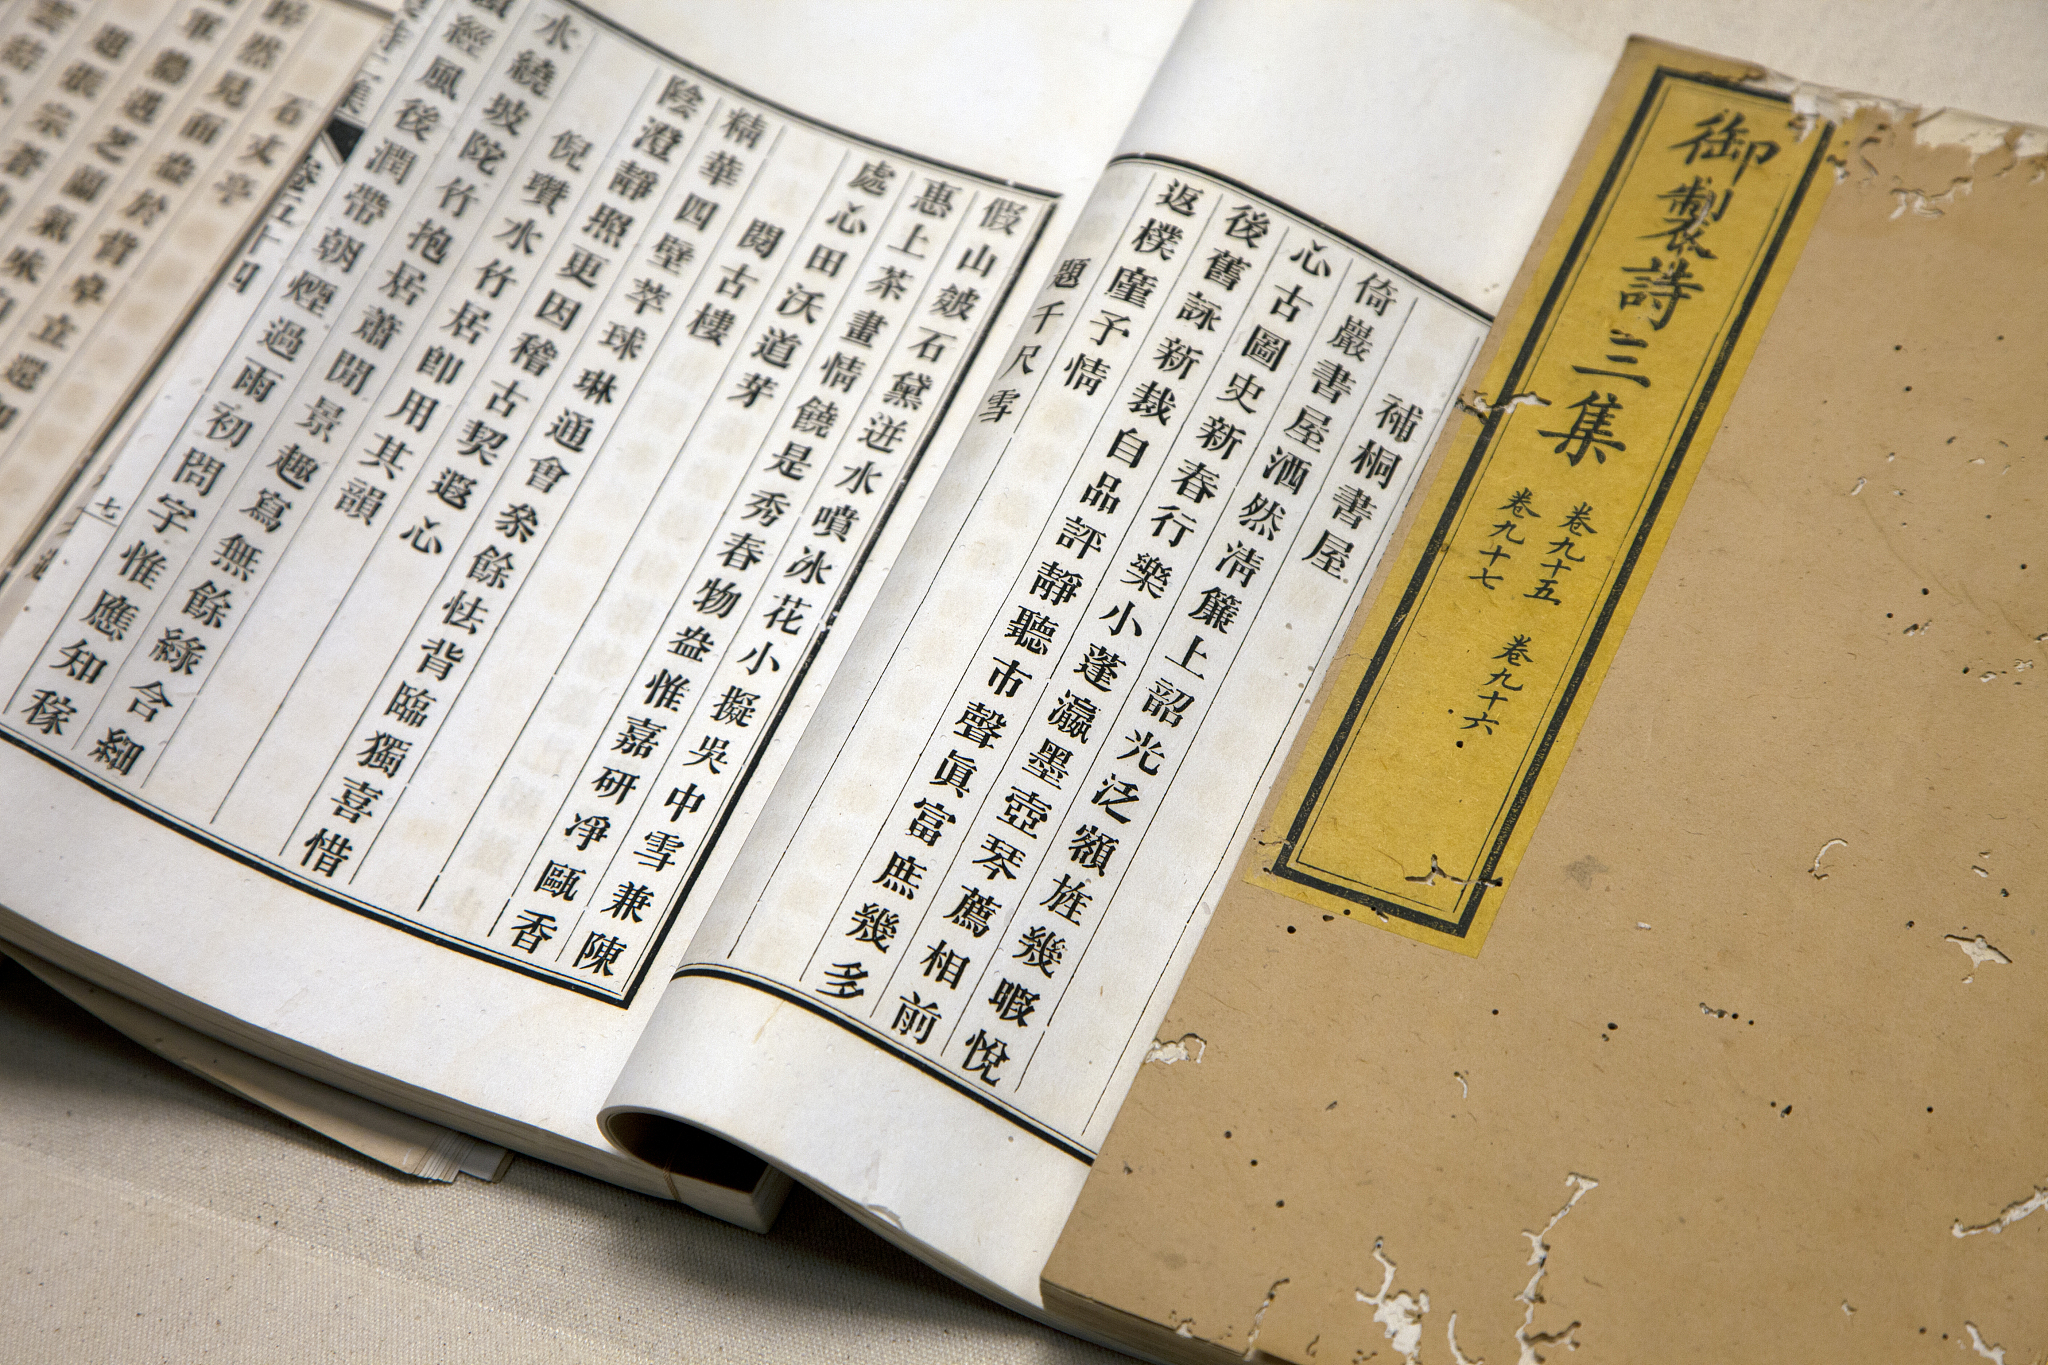 御製詩三集
卷九十五
卷九十六
卷九十七
補桐書屋
倚巖書屋洒然清簾上韶光泛額旌幾暇悅
心古圖史新春行樂小蓬瀛墨壺琴薦相前
後舊詠新裁自品評靜聽市聲眞富庶幾多
返樸廑予情
題千尺雪
假山皴石黛迸水噴冰花小擬吳中雪兼陳
惠上茶畫情饒是秀春物盎惟嘉研凈甌香
處心田沃道芽
閱古樓
精華四壁萃球琳通會叅餘怯背臨獨喜惜
陰澄靜照更因稽古契遐心
倪瓚水竹居卽用其韻
水繞坡陀竹抱居蕭閒景趣寫無餘緣含細
經風後潤帶朝煙過雨初問字惟應知稼
卷五十四
七
石丈亭
睟然見面盎於背卓立還如
軍變遇芝蘭氣味
題張宗蒼